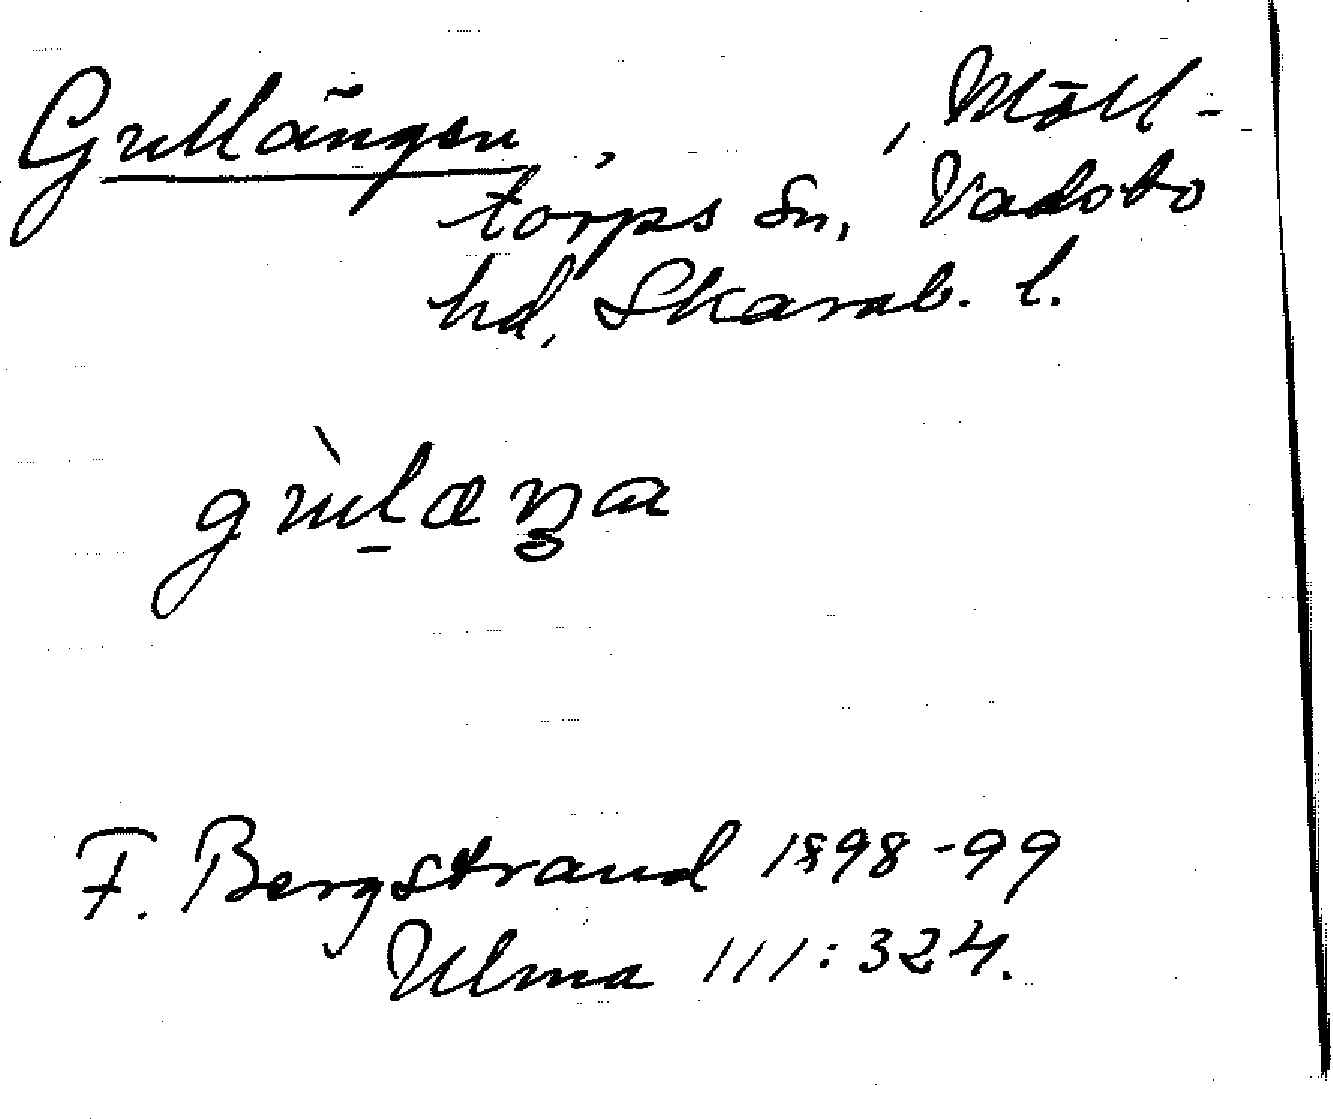 Gullängen, , Möll-
torps sn, Vadsbo
hd, Skarab. l.
gùl̠æŋa
F. Bergstrand 1898-99
Ulma 111:324.